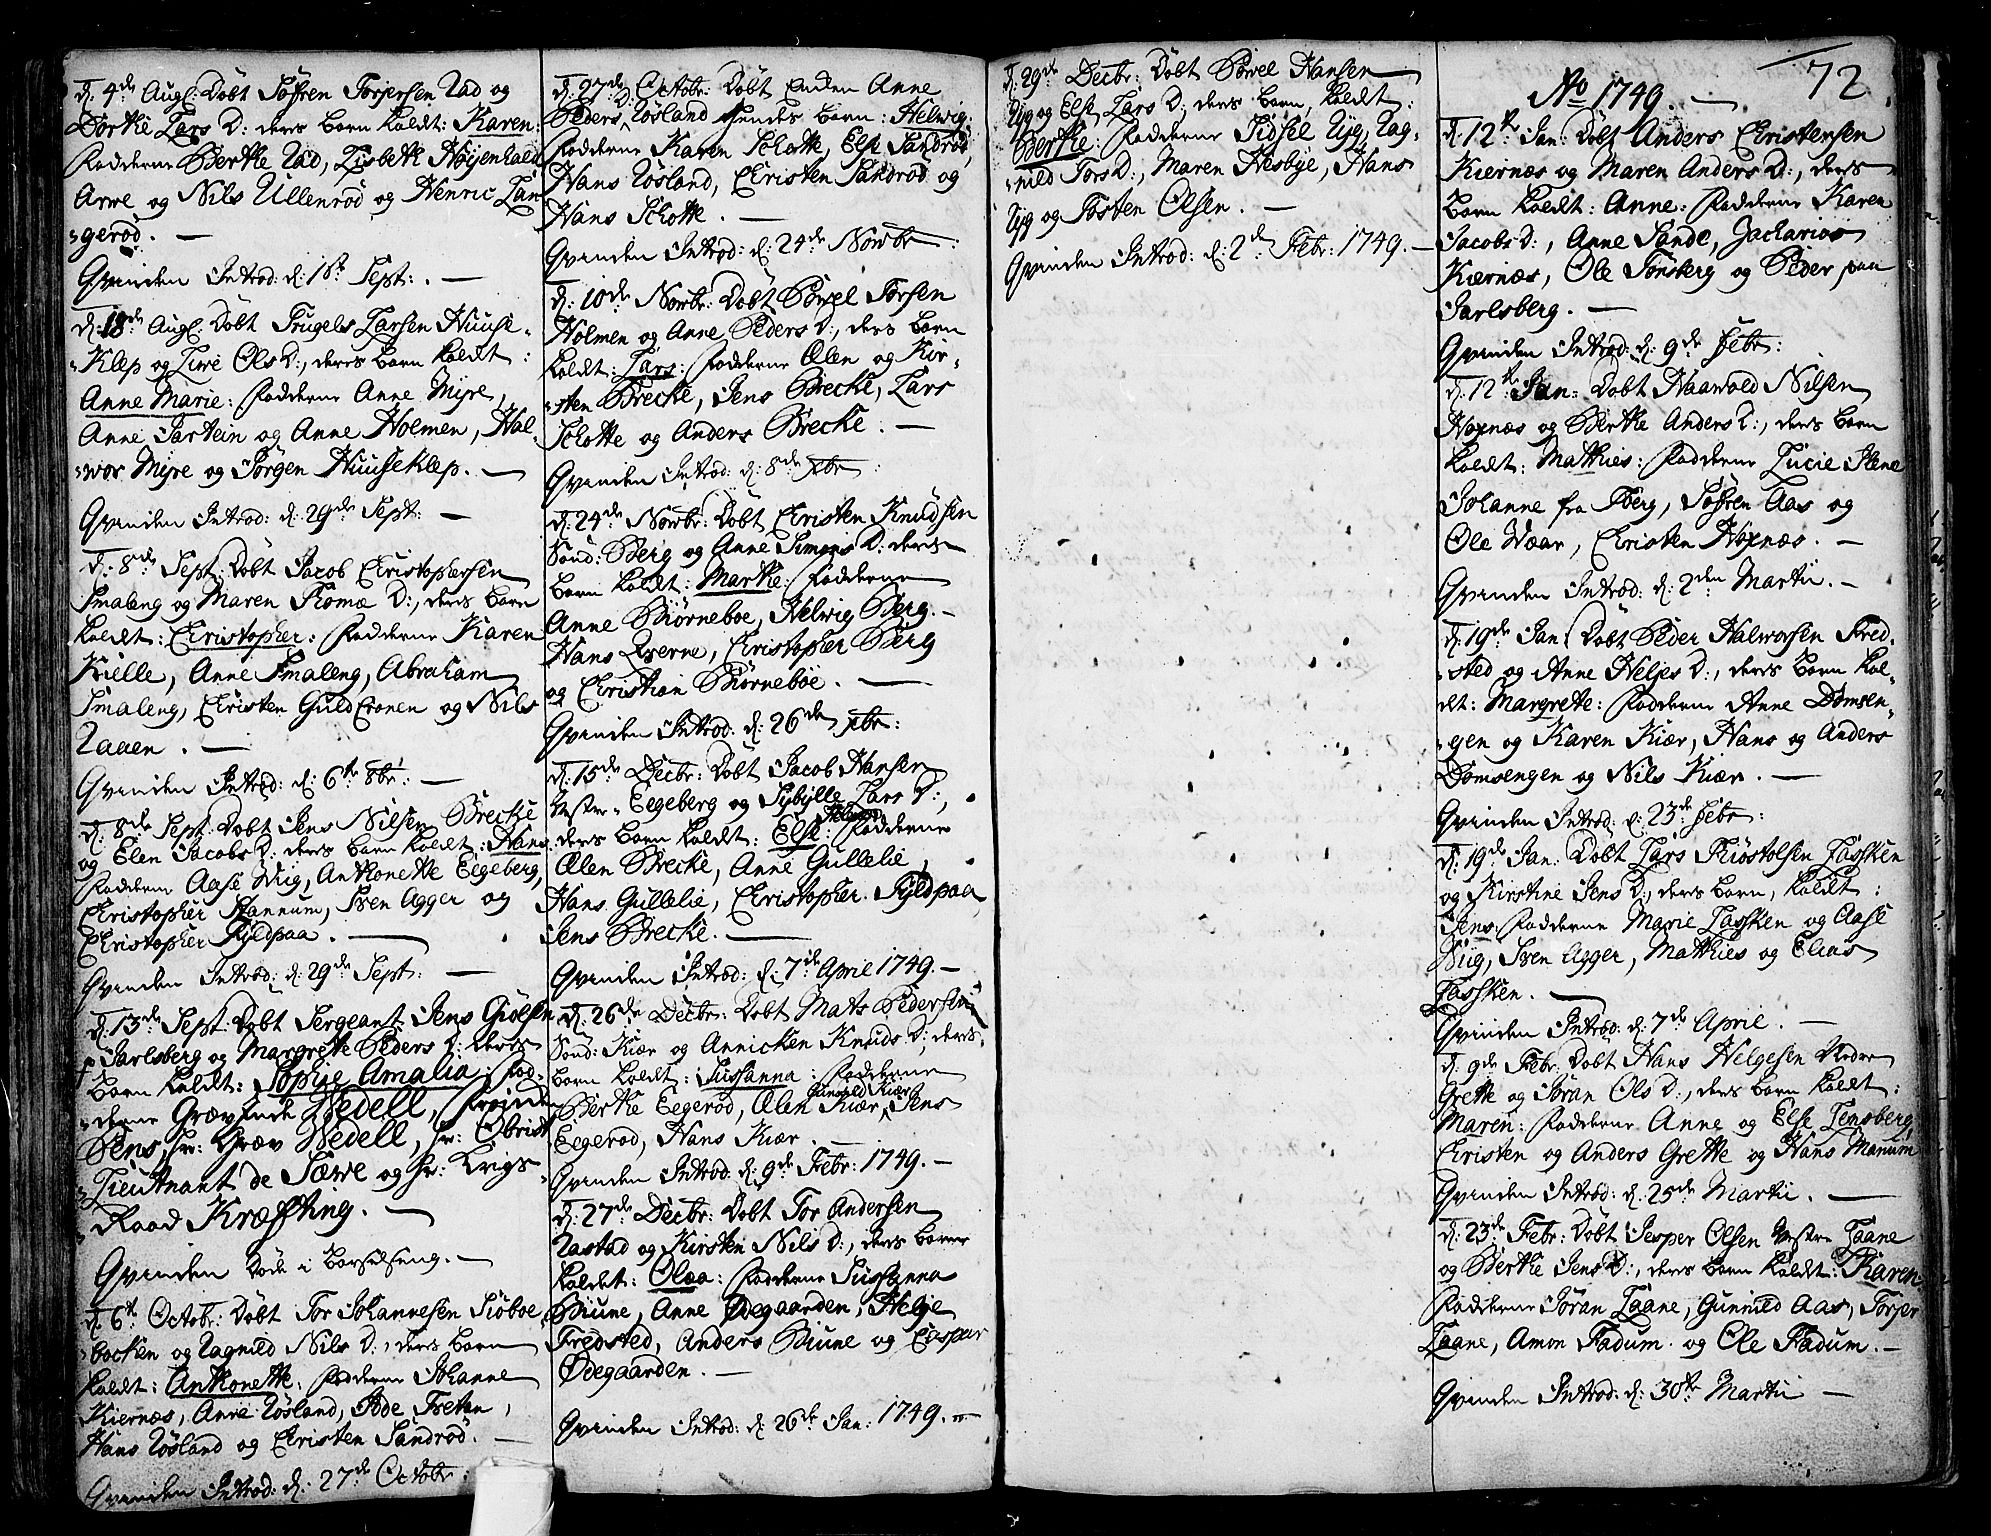 d: 4de Aug: Döbt Söfren Torjersen Rad og
Dorthe Lars D: ders Barn kaldt: Karen:
Fadderne Berthe Rad, Lisbeth Höyenhald
Arwe og Nils Ullenröd og Henric Lan-
-geröd. —
Qvinden Introd: d: 16de Sept: —
d: 18de Aug: Döbt Trugels Larsen Huuse-
-Klep og Live Ols D:, ders Barn kaldt:
Anne Marie: Fadderne Anne Myre,
Anne Jartein og Anne Holmen, Hal-
-vor Myre og Jörgen Huuseklep. —
Qvinden Introd: d: 29de Sept: —
d: 8de Sept: Döbt Jacob Christophersen
Smaleng og Maren Thomæ D:, ders Barn
kaldt: Christopher: Fadderne Karen
Kielle, Anne Smaleng, Abraham
Smaleng, Christen Guldcronen og Nils
Raaen. —
Qvinden Introd: d: 6te 8br: —
d: 8de Sept: Döbt Jens Nilsen Brecke
og Elen Jacobs D: ders Barn kaldt: Hans
Fadderne Aase Wiig, Anthonette Eegeberg,
Christopher Stannum, Sven Agger og
Christopher Fyldpaa. —
Qvinden Introd: d: 29de Sept: —
d: 13de Sept: Döbt Sergeant Jens Giölsen
Jarlsberg og Margrethe Peders D: ders
Barn kaldt: Sophie Amalia: Fad-
-derne Grævinde Wedell, Fröiden
Pens, Hr: Græv Wedell, Hr: Obrist
Lieutnant de Sæwe og Hr: Krigs
-Raad Kræfting. —
Qvinden döde i Barselseng. —
d: 6te Octobr: Döbt Tor Johannesen Siöboe
backen og Ragnild Nils D:, ders Barn
kaldt: Anthonette: Fadderne Johanne
Kiernæs, Anne Rösland, Ode Tretan,
Hans Rösland og Christen Sandröd. —
Qvinden Introd: d: 27de Octobr:
d: 27de Octobr: Döbt Enden Anne
Peders D: Rösland hendes Barn: Helwig:
Fadderne Karen Schotte, Else Sandröd,
Hans Rösland, Christen Sandröd og
Hans Schotte. —
Qvinden Introd: d: 24de Novbr:
d: 10de Novbr: Döbt Povel Torsen
Holmen og Anne Peders D:, ders Barn
kaldt: Lars: Fadderne Elen og Kir-
-sten Brecke, Jens Brecke, Lars
Schotte og Anders Brecke. —
Qvinden Introd: d: 8de Xbr:
d: 24de Novbr: Döbt Christen Knudsen
Sönd: Berg og Anne Simons D: ders
Barn kaldt: Marthe: Fadderne
Anne Börneboe, Helwig Berg. —
Hans Qverne, Christopher Berg
og Christian Börneböe. —
Qvinden Introd: d: 26de Xbr:
d: 15de Decbr: Döbt Jacob Hansen
Vester-Eegeberg og Sybylle Lars D:,
ders Barn kaldt: Else: Fadderne
Elen Brecke, Anne Gullelie,
Hans Gullelie, Christopher Fyldpaa
Jens Brecke. —
Qvinden Introd: d: 7de April 1749. —
d: 26de Decbr: Döbt Mats Pedersen
Sönd: Kiær og Annicken Knuds D:, ders
Barn kaldt: Susanna: Fadderne
Gunnild Kiær
Berthe Eegeröd, Elen Kiær, Jens
Eegeröd, Hans Kiær. —
Qvinden Introd: d: 9de Febr: 1749. —
d: 27de Decbr: Döbt Tor Andersen
Rastad og Kirsten Nils D:, ders Barn
kaldet: Olea: Fadderne Susanna
Biune, Anne Ödegaarden, Helje
Fredsted, Anders Biune og Casper
Ödegaarden. —
Qvinden Introd: d: 26de Jan: 1749. —
d: 29de Decbr: Döbt Povel Hansen
Ryg og Else Lars D: ders Barn, kaldt:
Berthe: Fadderne Sidsel Ryg, Rag-
-nild Tors D:, Maren Nesbye, Hans
Ryg og Tosten Olsen. —
Qvinden Introd: d: 2de Febr: 1749. —
72
No 1749. —
d: 12te Jan: Döbt Anders Christensen
Kiernæs og Maren Anders D:, ders
Barn kaldt: Anne: Fadderne Karen
Jacobs D:, Anne Sande, Zacharias
Kiernæs, Ole Tönsberg og Peder paa
Jarlsberg. —
Qvinden Introd: d: 9de Febr:
d: 12te Jan: Döbt Haawold Nilsen
Hoxnæs og Berthe Anders D:, ders Barn
kaldt: Mathies: Fadderne Lucie Ilene
Johanne fra Berg, Söfren Aas og
Ole Waar, Christen Hoxnæs. —
Qvinden Introd: d: 2den Martii. —
d: 19de Jan: Döbt Peder Halworsen Fred-
-sted og Anne Heljes D:, ders Barn kal-
dt: Margrete: Fadderne Anne Domsen-
-gen og Karen Kiær, Hans og Anders
Domsengen og Nils Kiær. —
Qvinden Introd: d: 23de Febr:
d: 19de Jan: Döbt Lars Thiostolsen Fassken
og Kirstine Jens D:, ders Barn, kaldt:
Jens: Fadderne Marie Fassken og Aase
Wiig, Sven Agger, Mathies og Elias
Fassken. —
Qvinden Introd: d: 7de April. —
d: 9de Febr: Döbt Hans Helgesen Nedre
Grette og Söran Ols D:, ders Barn kaldt:
Maren: Fadderne Anne og Else Lensberg
Christen og Anders Grette og Hans Manum
Qvinden Introd: d: 25de Martii. —
d: 23de Febr: Döbt Jesper Olsen Vestre Taane
og Berthe Jens D:, ders Barn kaldt: Karen
Fadderne Söran Taane, Gunnild Aas, Torjer
Taane, Amon Fadum og Ole Fadum. —
Qvinden Introd: d: 30te Martii —